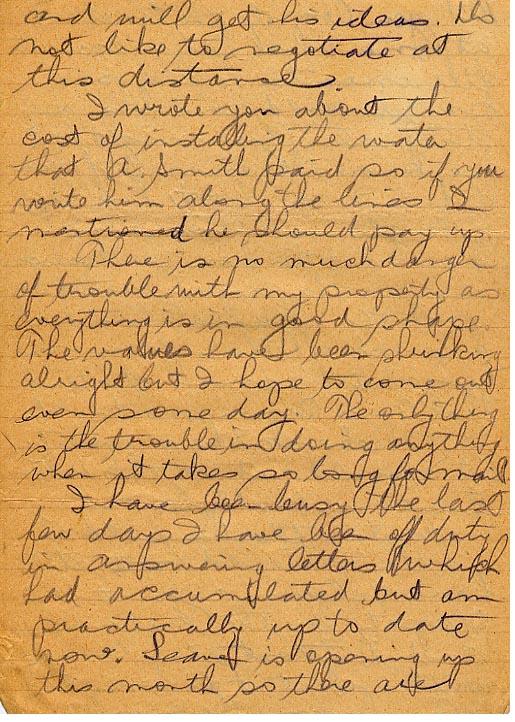 and will get his ideas. Do
not like to negotiate at
this distance
I wrote you about the
cost of installing the water
that A. Smith paid so if you
write him along the lines I
mentioned he should pay up.
There is no much danger
of trouble with my property as
everything is in good shape.
The values have been shrinking
alright but I hope to come out
even some day. The only thing
is the trouble in doing anything
when it takes so long for mail.
I have been busy the last
few days I have been off duty
in answering letters which
had accumulated but am
practically up to date
now. Leave is opening up
this month so there are